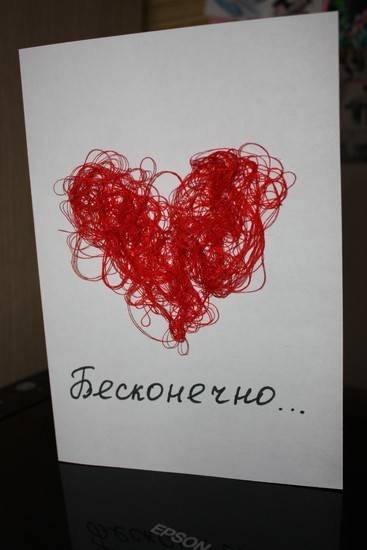 Бесконечно...
EPSON